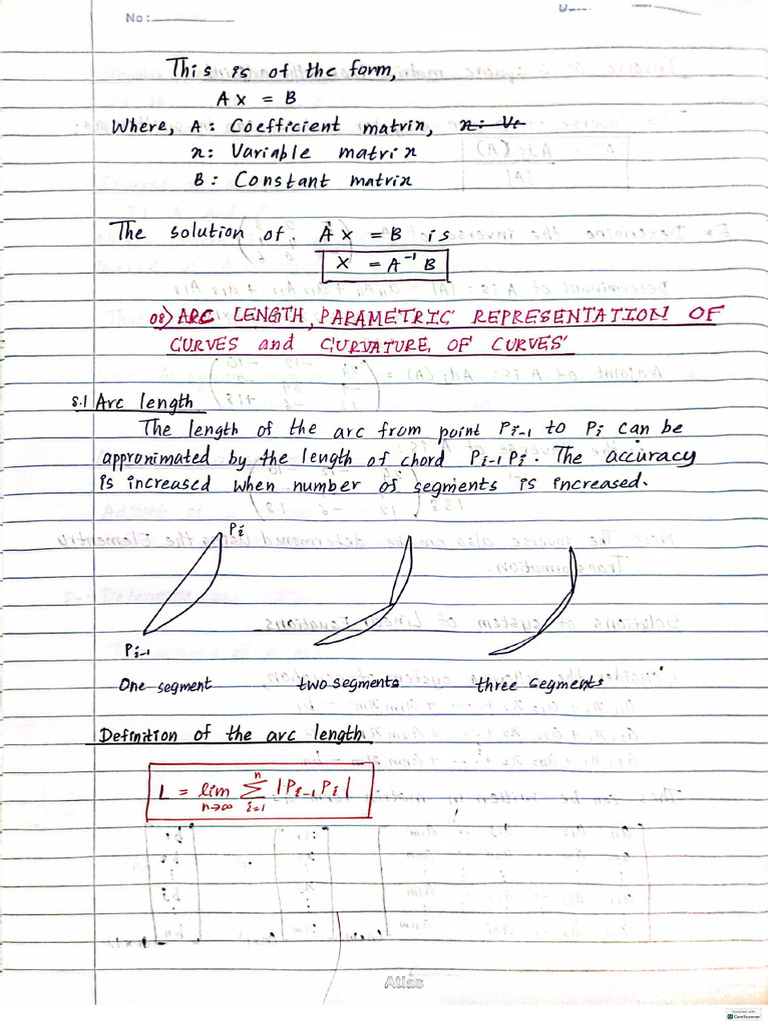 No:
This is of the form,
A x = B
Where, A: Coefficient matrin, x: Va
x: Variable matrix
B: Constant matrix
The solution of A x = B is
X = A⁻¹ B
08) ARC LENGTH, PARAMETRIC REPRESENTATION OF
CURVES and CURVATURE OF CURVES
8.1 Arc length
The length of the arc from point Pi-1 to Pi can be
approximated by the length of chord Pi-1 Pi. The accuracy
is increased when number of segments is increased.
Pi
Pi-1
One segment two segments three segments
Definition of the arc length
L = lim n→∞ n Σ i=1 |Pi-1 Pi|
Atlas
Scanned with
CamScanner